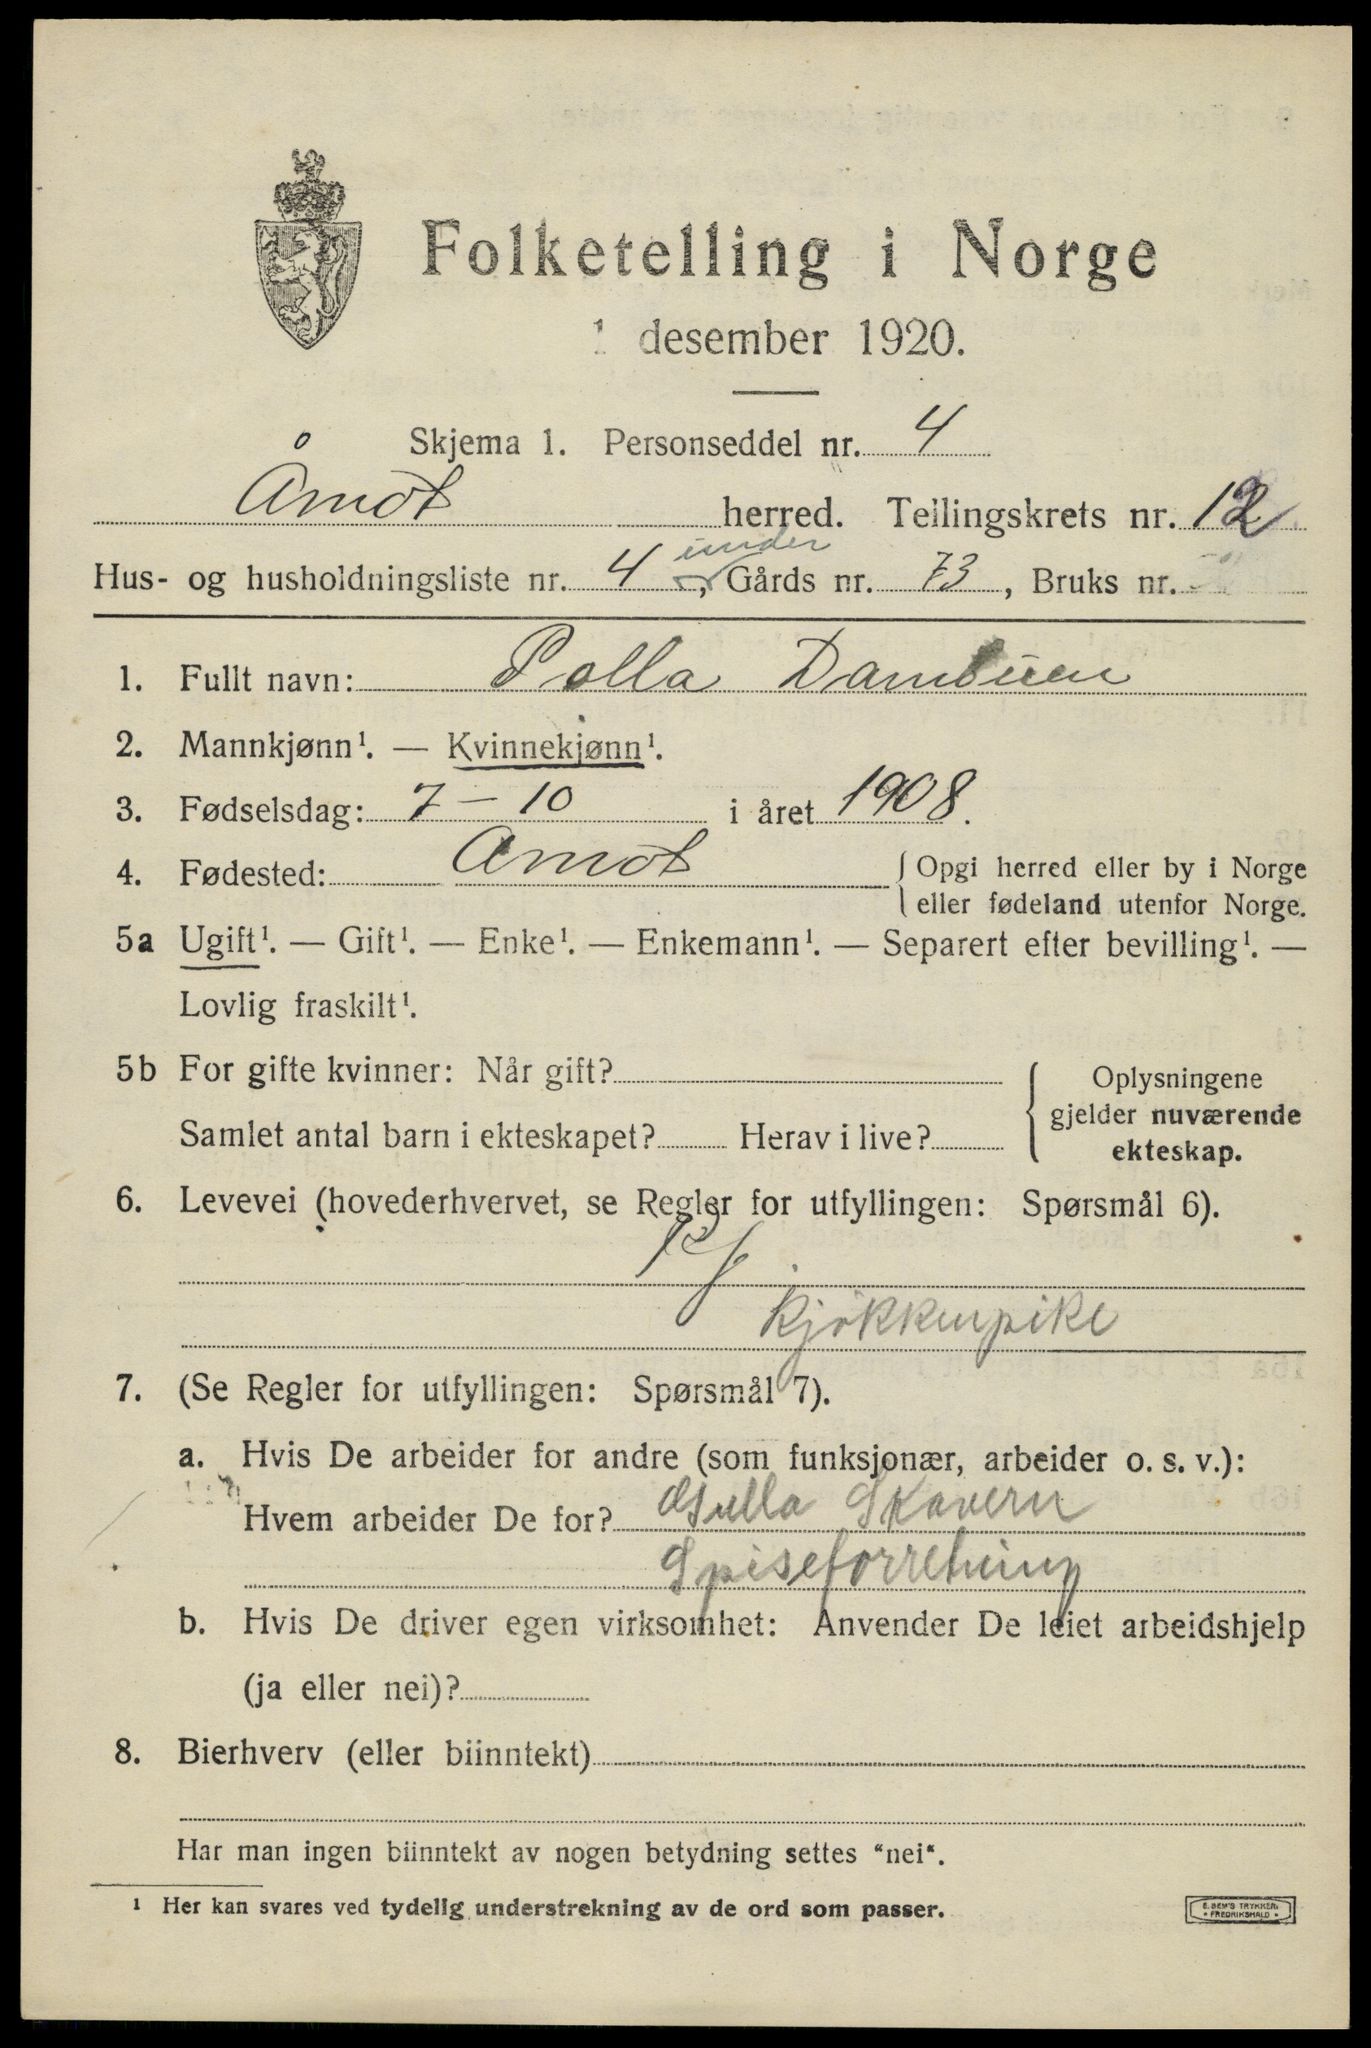 Folketelling i Norge
1 desember 1920.
Skjema 1. Personseddel nr. 4
Åmot herred. Tellingskrets nr. 12
under
Hus- og husholdningsliste nr. 4, Gårds nr. 73, Bruks nr.
1. Fullt navn: Palla Dambuen
2. Mannkjønn¹. — Kvinnekjønn¹.
3. Fødselsdag: 7 - 10 i året 1908.
4. Fødested: Åmot { Opgi herred eller by i Norge
eller fødeland utenfor Norge.
5a Ugift¹. — Gift¹. — Enke¹. — Enkemann¹. — Separert efter bevilling¹. —
Lovlig fraskilt¹.
5b For gifte kvinner: Når gift? { Oplysningene
gjelder nuværende
Samlet antal barn i ekteskapet? Herav i live?
ekteskap.
6. Levevei (hovederhvervet, se Regler for utfyllingen: Spørsmål 6).
kjøkkenpike
7. (Se Regler for utfyllingen: Spørsmål 7).
a. Hvis De arbeider for andre (som funksjonær, arbeider o. s. v.):
Hvem arbeider De for? Gulla Skavern
Spiseforretning
b. Hvis De driver egen virksomhet: Anvender De leiet arbeidshjelp
(ja eller nei)?
8. Bierhverv (eller biinntekt)
Har man ingen biinntekt av nogen betydning settes "nei".
¹ Her kan svares ved tydelig understrekning av de ord som passer.
E. SEM'S TRYKKERI
• FREDRIKSHALD •